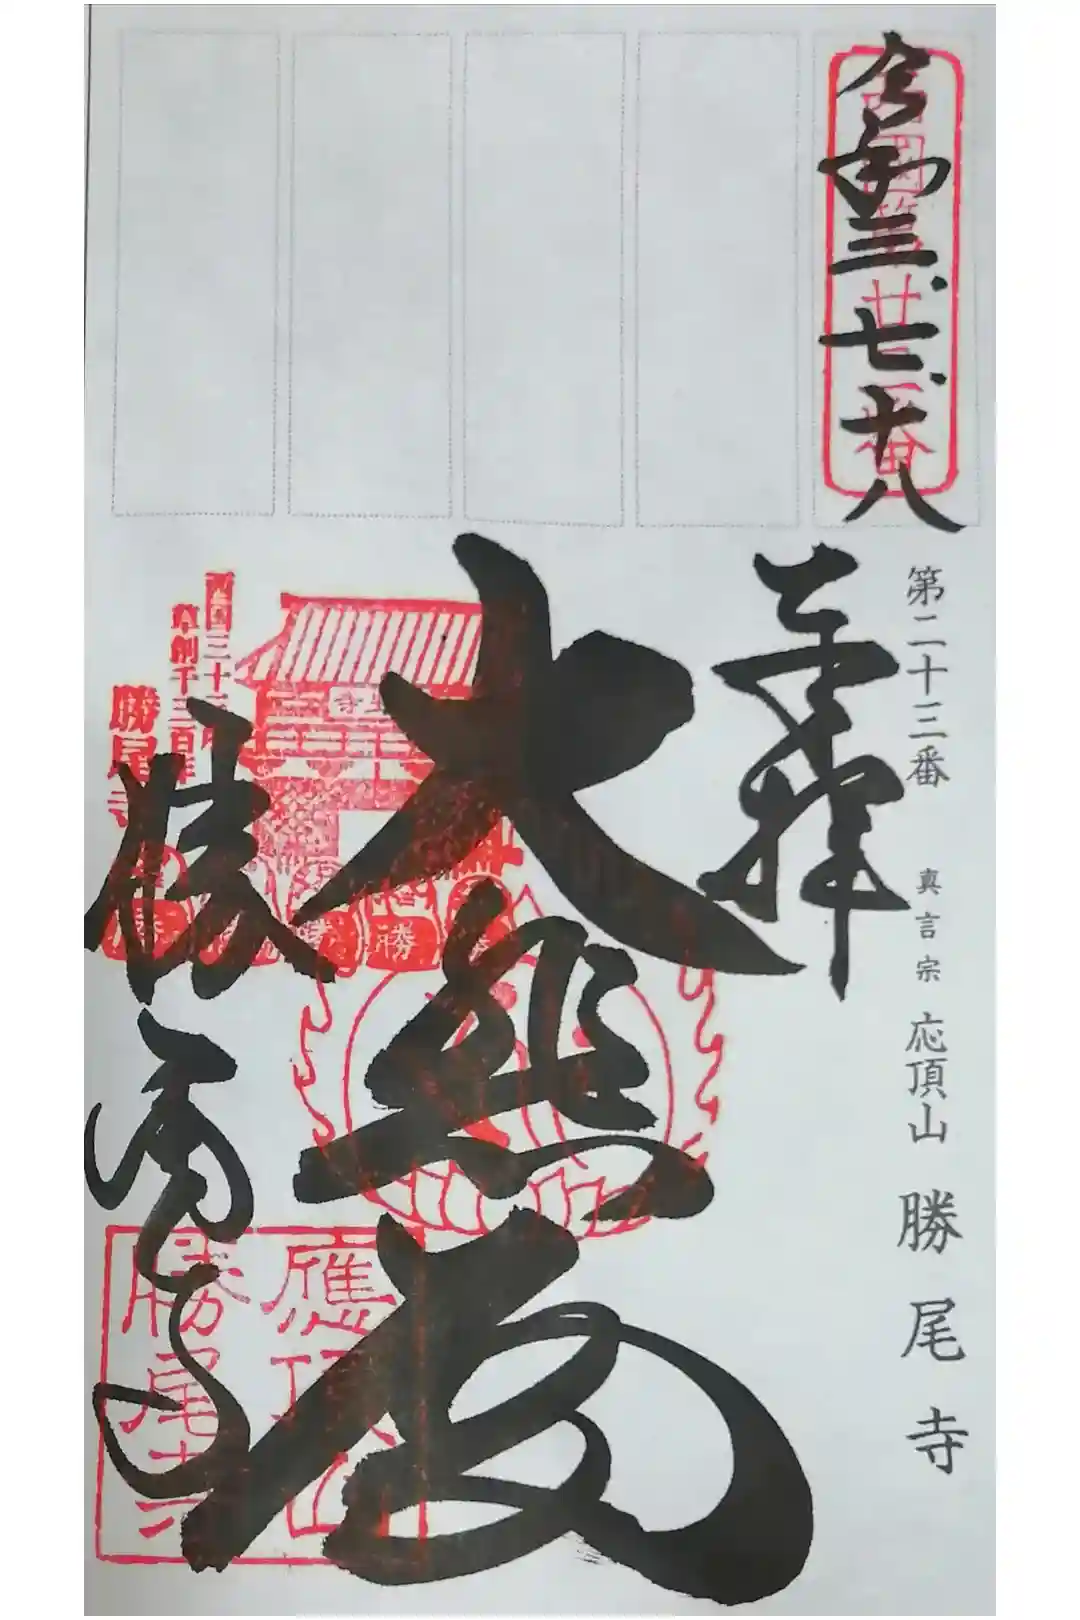 令和三、七、十八
西國第廿三番
第二十三番 真言宗 応頂山 勝尾寺
奉拝
大悲殿
西国三十三所
草創千三百年
勝尾寺
勝尾寺
應頂山
勝尾寺